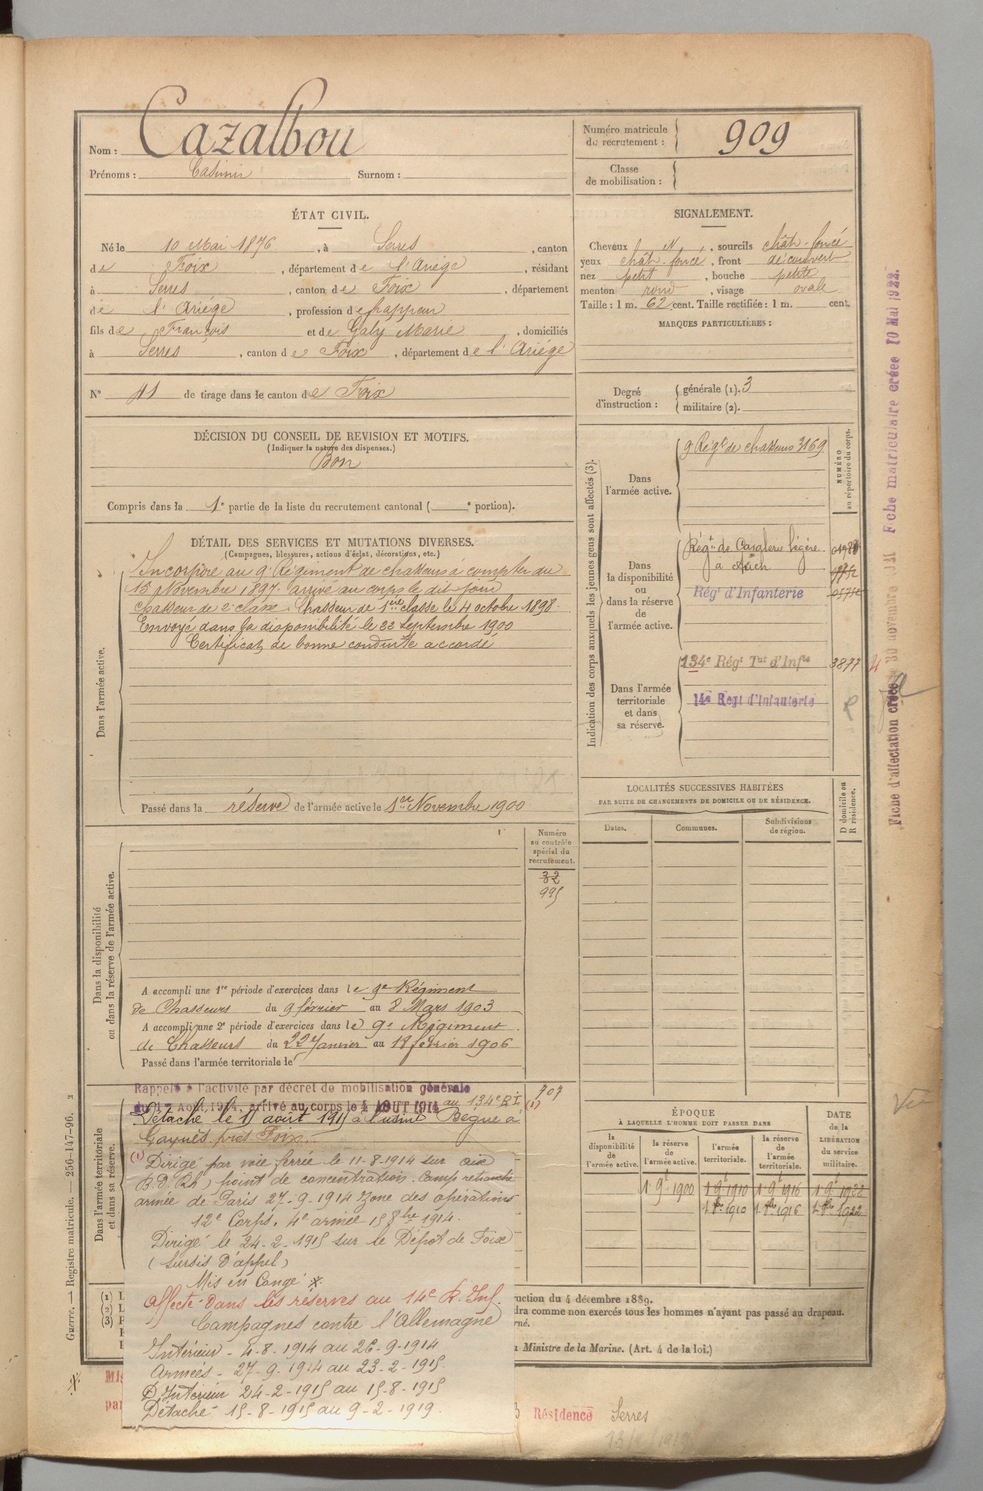 Nom : Cazalbou
Prénoms : Casimir Surnom :
Numéro matricule du recrutement : 909
Classe de mobilisation :
ÉTAT CIVIL.
Né le 10 Mai 1876, à Serres, canton
de Foix, département de l'Ariège, résidant
à Serres, canton de Foix, département
de l'Ariège, profession de frappeur
fils de François et de Galy Marie, domiciliés
à Serres, canton de Foix, département de l'Ariège
N° 11 de tirage dans le canton de Foix
SIGNALEMENT.
Cheveux N, sourcils chât-foncé
yeux chât-foncé, front découvert
nez petit, bouche petite
menton rond, visage ovale
Taille : 1 m. 62 cent. Taille rectifiée : 1 m. cent.
MARQUES PARTICULIÈRES :
Degré d'instruction : générale (1). 3
militaire (2).
DÉCISION DU CONSEIL DE REVISION ET MOTIFS.
(Indiquer la nature des dispenses.)
Bon
Compris dans la 1e partie de la liste du recrutement cantonal ( e portion).
DÉTAIL DES SERVICES ET MUTATIONS DIVERSES.
(Campagnes, blessures, actions d'éclat, décorations, etc.)
Dans l'armée active.
Incorporé au 9e Régiment de chasseurs à compter du
15 Novembre 1897. arrivé au corps le dit jour
chasseur de 2e classe. Chasseur de 1ère classe le 4 octobre 1898.
Envoyé dans la disponibilité le 22 septembre 1900
Certificat de bonne conduite accordé
Passé dans la réserve de l'armée active le 1er Novembre 1900
Indication des corps auxquels les jeunes gens sont affectés (3).
NUMÉRO au répertoire du corps.
Dans l'armée active.
9 Régt de chasseurs 3169
Dans la disponibilité ou dans la réserve de l'armée active.
Régt de Cavalerie légère
à Auch
Régt d'Infanterie
Dans l'armée territoriale et dans sa réserve.
134e Régt Tal d'Infie 3877
14e Regt d'Infanterie
Fiche d'affectation créée 30 novembre Fiche matriculaire créée 10 Mai 1922.
LOCALITÉS SUCCESSIVES HABITÉES
PAR SUITE DE CHANGEMENTS DE DOMICILE OU DE RÉSIDENCE.
Dates. Communes. Subdivisions de région.
D domicile ou R résidence.
Numéro au contrôle spécial du recrutement.
32
995
Dans la disponibilité ou dans la réserve de l'armée active.
A accompli une 1re période d'exercices dans le 9e Régiment
de Chasseurs du 9 février au 8 Mars 1903
A accompli une 2e période d'exercices dans le 9e Régiment
de Chasseurs du 22 Janvier au 18 février 1906
Passé dans l'armée territoriale le
Dans l'armée territoriale et dans sa réserve.
Rappelé à l'activité par décret de mobilisation générale
du 1er Août 1914, arrivé au corps le 4 AOUT 1914 au 134e R.I. (1)
909
Détaché le 15 août 1915 à l'usine Bègue à
Gaynès près Foix.
(1) Dirigé par voie ferrée le 11-8-1914 sur
point de concentration. Camp retranché
armée de Paris 27-9-1914 Zone des opérations
12e Corps. 4e armée 15 8bre 1914.
Dirigé le 24-2-1915 sur le Dépôt de Foix
(sursis d'appel)
Mis en Congé
Affecté dans les réserves au 14e R. Inf.
Campagnes contre l'Allemagne
Intérieur - 4-8-1914 au 26-9-1914
Armées - 27-9-1914 au 23-2-1915
Intérieur 24-2-1915 au 15-8-1915
Détaché 15-8-1915 au 9-2-1919.
ÉPOQUE
À LAQUELLE L'HOMME DOIT PASSER DANS
la disponibilité de l'armée active. la réserve de l'armée active. l'armée territoriale. la réserve de l'armée territoriale.
DATE de la LIBÉRATION du service militaire.
1 9e 1900 1 9e 1910 1 9e 1916 1 9e 1922
1 8e 1910 1 8e 1916 1 8e 1922
Guerre. — Registre matricule. — 256-147-96.
(1)
(2)
(3)
uction du 4 décembre 1889.
dra comme non exercés tous les hommes n'ayant pas passé au drapeau.
rné.
u Ministre de la Marine. (Art. 4 de la loi.)
Résidence Serres